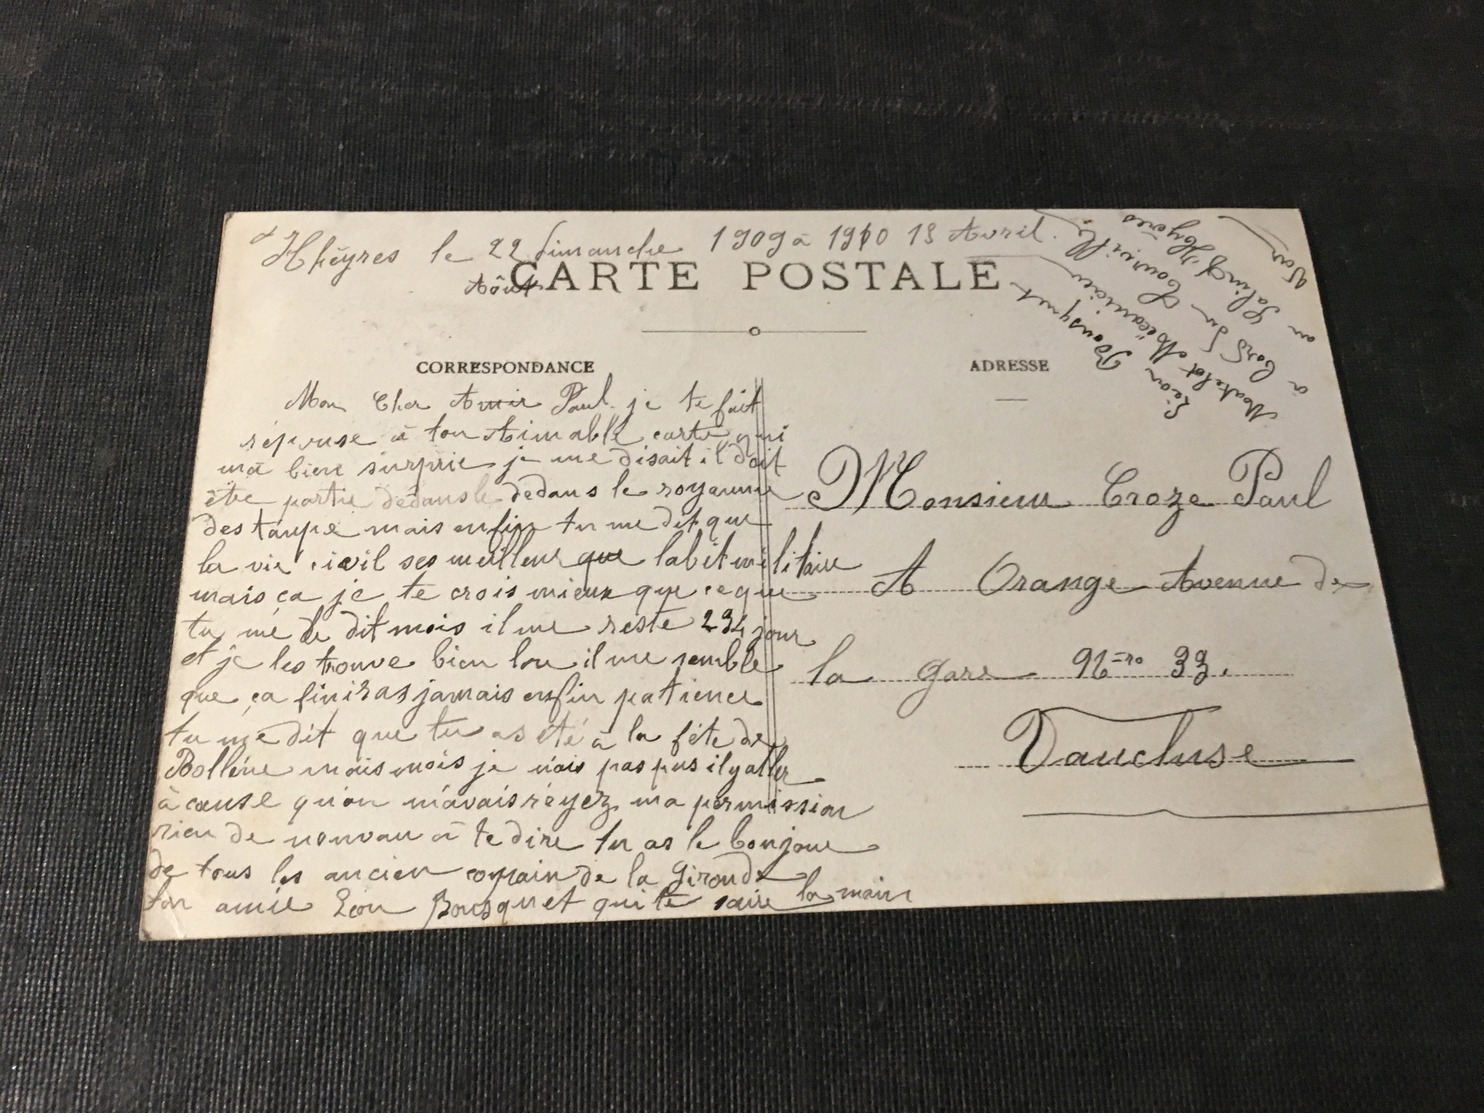 d'Hhéyres le 22 Dimanche 1909 à 1910 13 Avril.
Août
CARTE POSTALE
CORRESPONDANCE
Mon Cher Amir Paul je te fait
réponse a ton Aimable carte qui
ma bien surprie je me disait il doit
être partie dedans le dedans le royaume
des taupe mais enfin tu me dit que
la vie civil ses meilleur que labit militaire
mais ça je te crois mieux que ce que
tu me le dit mois il me reste 234 jour
et je les trouve bien lon il me semble
que ça finiras jamais enfin patience
tu me dit que tu as été à la fête de
Bollène mais mois je nais pas pus il y aller
à cause qu'on m'avais réyez ma permission
rien de nouvau à te dire tu as le bonjour
de tous les ancien copain de la Gironde
ton amie Léon Bousquet qui te saire la main
ADRESSE
Monsieur Croze Paul
A Orange Avenue de
la gare Nro 33.
Vaucluse
Léon Bousquet
Matelot Mécanicien
a bord du Tourville
au Salins d'Hyères
Var